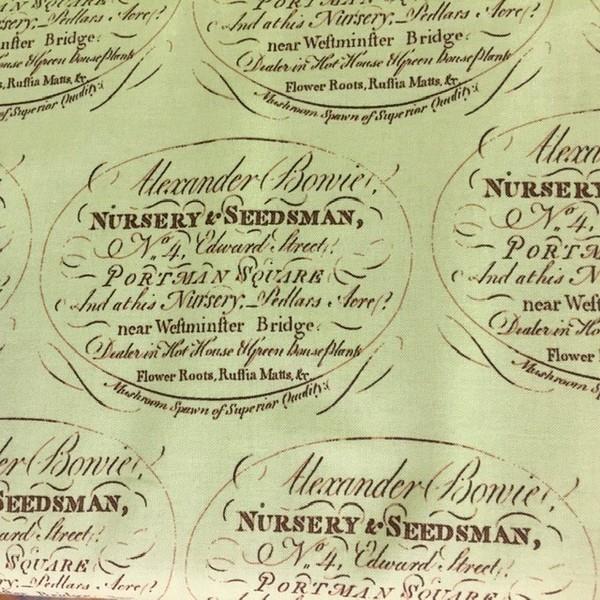 AN SQUARE
y,_Pedlars Acre?
inſter Bridge
ouse & Green Houſe Plants
s, Ruſſia Matts, &c
of Superior Quality
PORTMAN SQUARE
And at his Nursery,_Pedlars Acre?
near Weſtminſter Bridge
Dealer in Hot House & Green House Plants
Flower Roots, Ruſſia Matts, &c.
Mushroom Spawn of Superior Quality
Alexander Bowie,
NURSERY & SEEDSMAN,
No. 4, Edward Street,
PORTMAN SQUARE
And at his Nursery,_Pedlars Acre?
near Weſtminſter Bridge
Dealer in Hot House & Green House Plants
Flower Roots, Ruſſia Matts, &c.
Mushroom Spawn of Superior Quality
Alexa
NURSERY
No. 4,
PORTM
And at his N
near Weſt
Dealer in Ho
Flower
Mushroom Sp
er Bowie,
SEEDSMAN,
ard Street
SQUARE
ry,_Pedlars Acre?
Alexander Bowie,
NURSERY & SEEDSMAN,
No. 4, Edward Street,
PORTMAN SQUARE